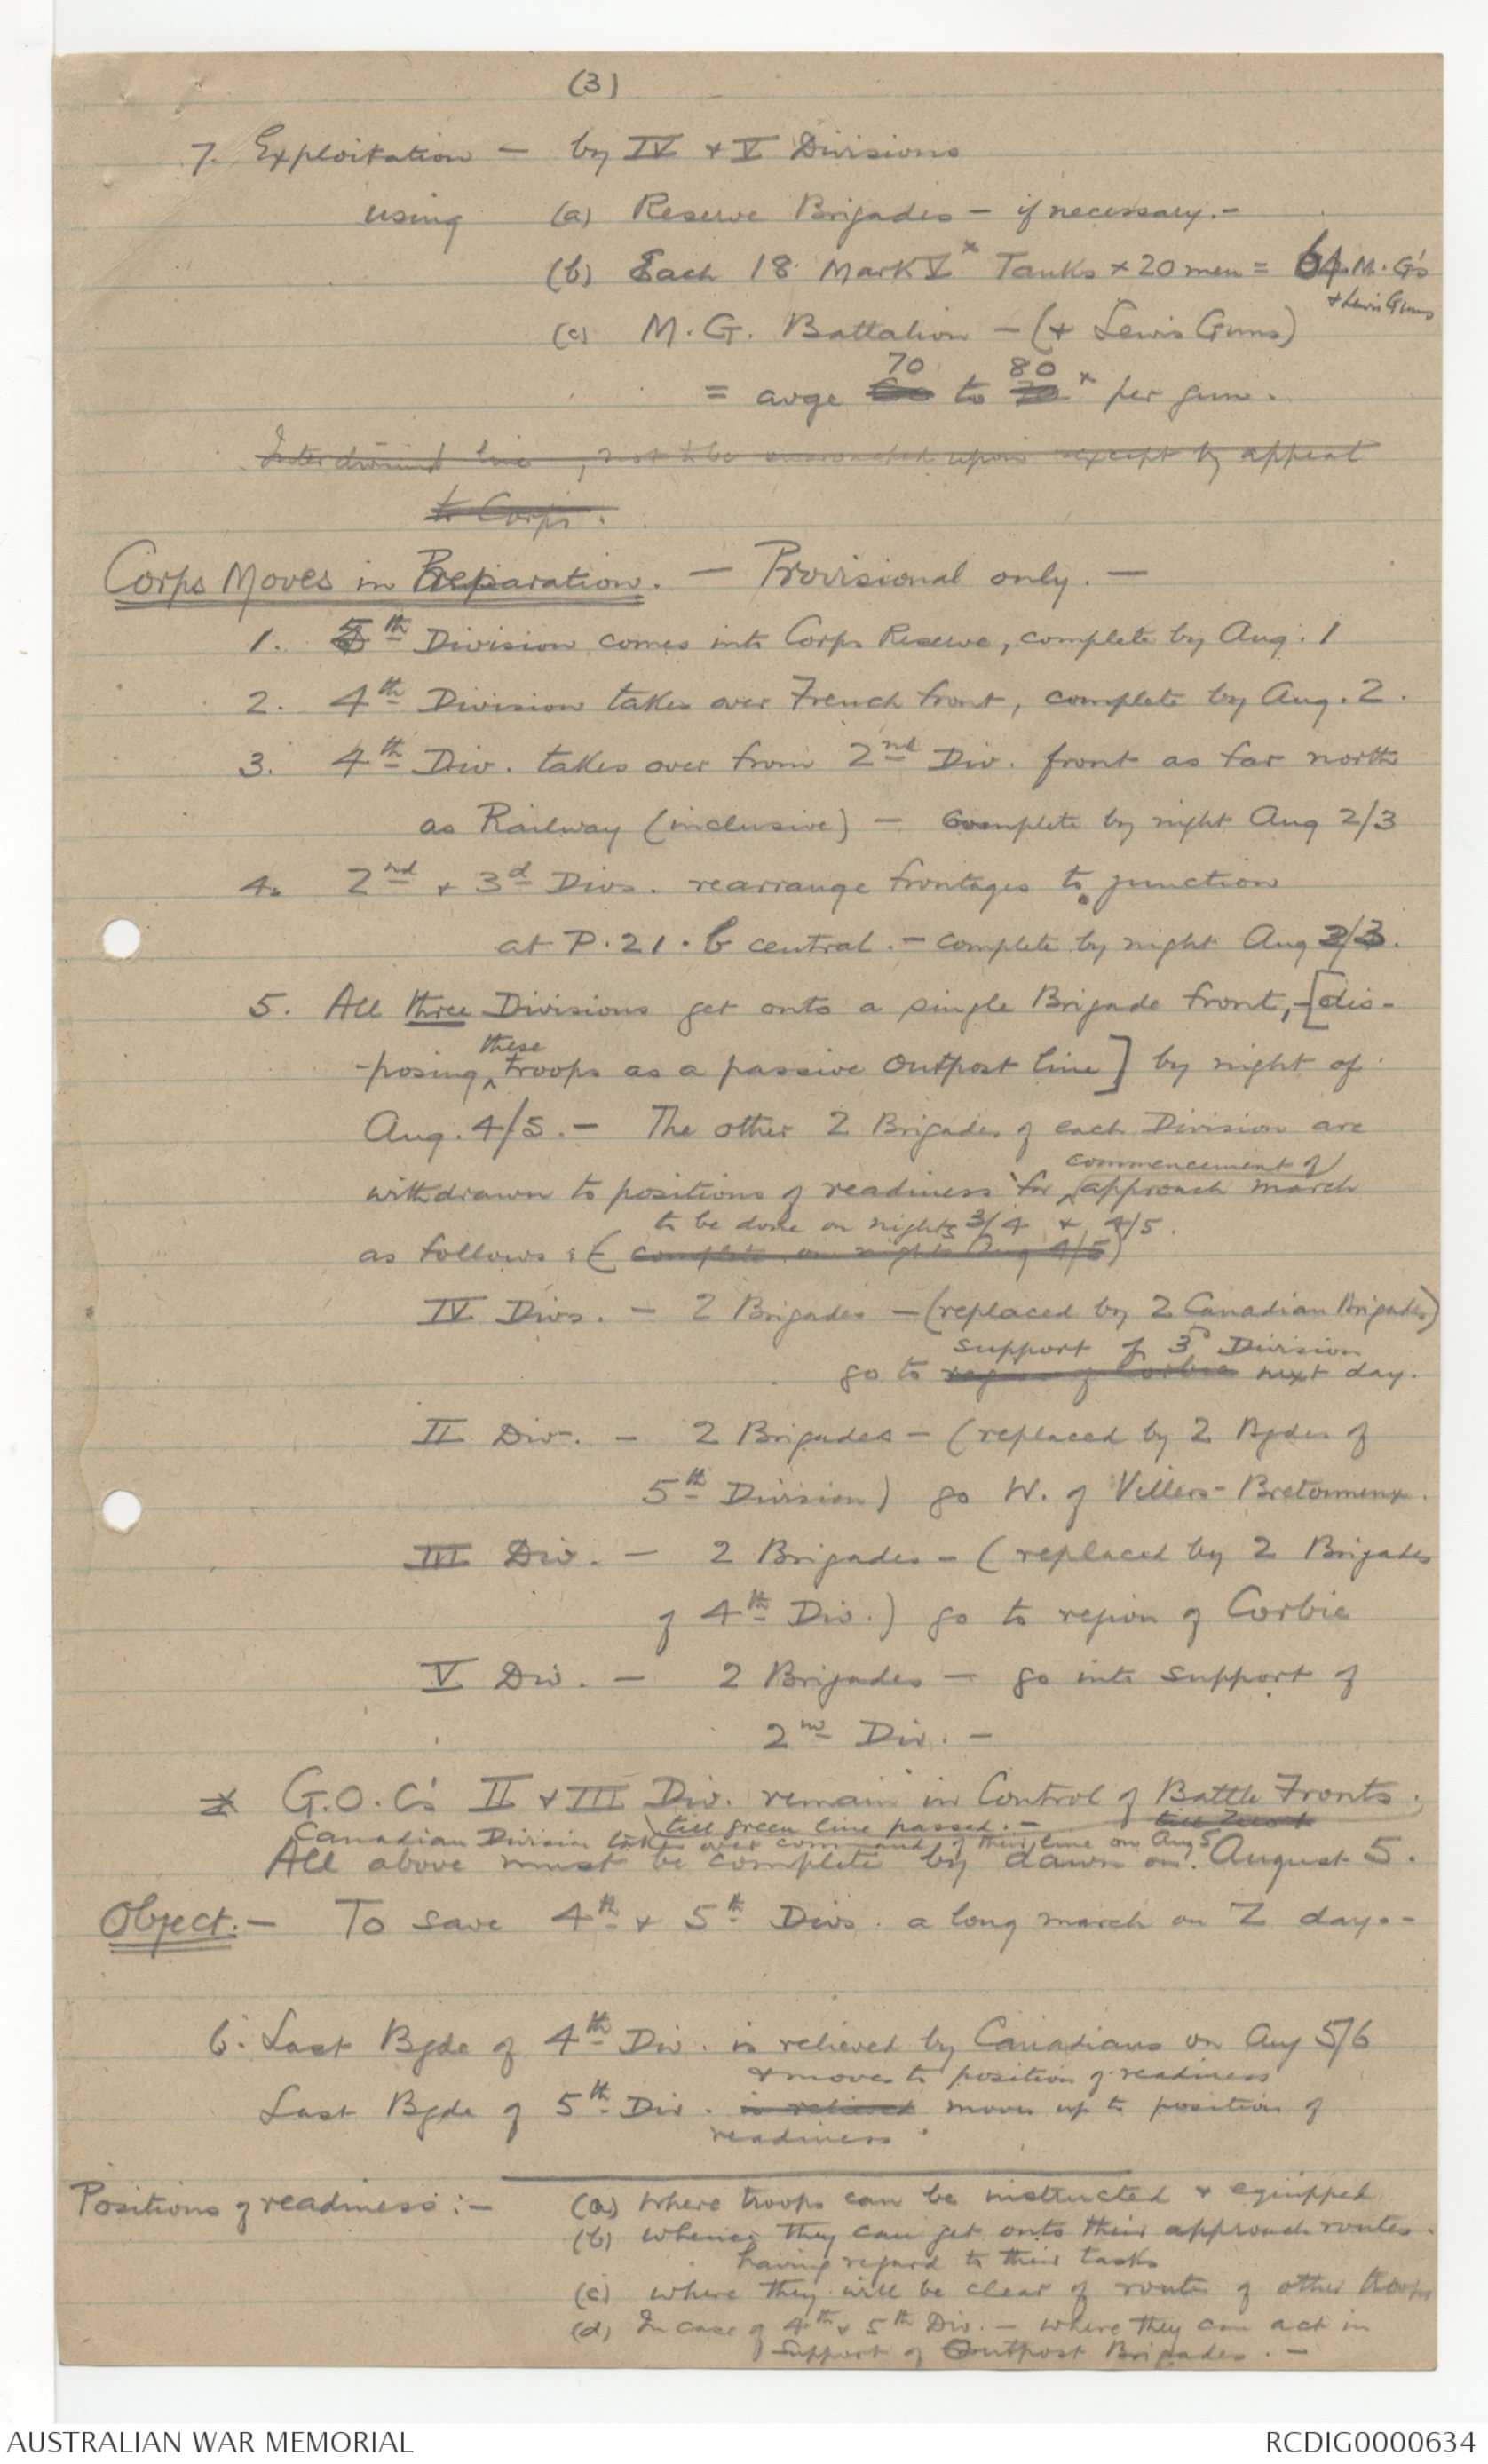 (3)
7. Exploitation — by IV & V Divisions
using (a) Reserve Brigades — if necessary. —
(b) Each 18 Mark V* Tanks × 20 men = 64 M.G's
& Lewis Guns
(c) M.G. Battalion — (+ Lewis Guns)
70 80
= avge to x per gun.
Interdivisional line, not to be encroached upon except by appeal
to Corps.
Corps Moves in Preparation. — Provisional only. —
1. 5th Division comes into Corps Reserve, complete by Aug. 1
2. 4th Division takes over French front, complete by Aug. 2.
3. 4th Div. takes over from 2nd Div. front as far north
as Railway (inclusive) — complete by night Aug 2/3
4. 2nd & 3d Divs. rearrange frontages to junction
at P.21.b central. — complete by night Aug 2/3.
5. All three Divisions get onto a single Brigade front, — [dis-
these
-posing ^ troops as a passive Outpost line] by night of
Aug. 4/5. — The other 2 Brigades of each Division are
commencement of
withdrawn to positions of readiness for ^ approach march
to be done on nights 3/4 & 4/5.
as follows: ( complete on night Aug 4/5)
IV Divs. — 2 Brigades — (replaced by 2 Canadian Brigades)
support of 3d Division
go to region of Corbie next day.
II Div. — 2 Brigades — (replaced by 2 Bgdes of
5th Division) go W. of Villers-Bretonneux.
III Div. — 2 Brigades — (replaced by 2 Brigades
of 4th Div.) go to region of Corbie
V Div. — 2 Brigades — go into support of
2nd Div. —
* G.O.C's II & III Div. remain in Control of Battle Fronts.
till green line passed. — till Zero
Canadian Division takes over command of their line on Aug 5
All above must be complete by dawn on August 5.
Object. — To save 4th & 5th Divs. a long march on Z day. —
6. Last Bgde of 4th Div. is relieved by Canadians on Aug 5/6
& moves to position of readiness
Last Bgde of 5th Div. is relieved moves up to position of
readiness.
Positions of readiness: — (a) Where troops can be instructed & equipped
(b) whence they can get onto their approach routes.
having regard to their tasks
(c) where they will be clear of routes of other troops
(d) In case of 4th & 5th Div. — where they can act in
support of Outpost Brigades. —
AUSTRALIAN WAR MEMORIAL
RCDIG0000634